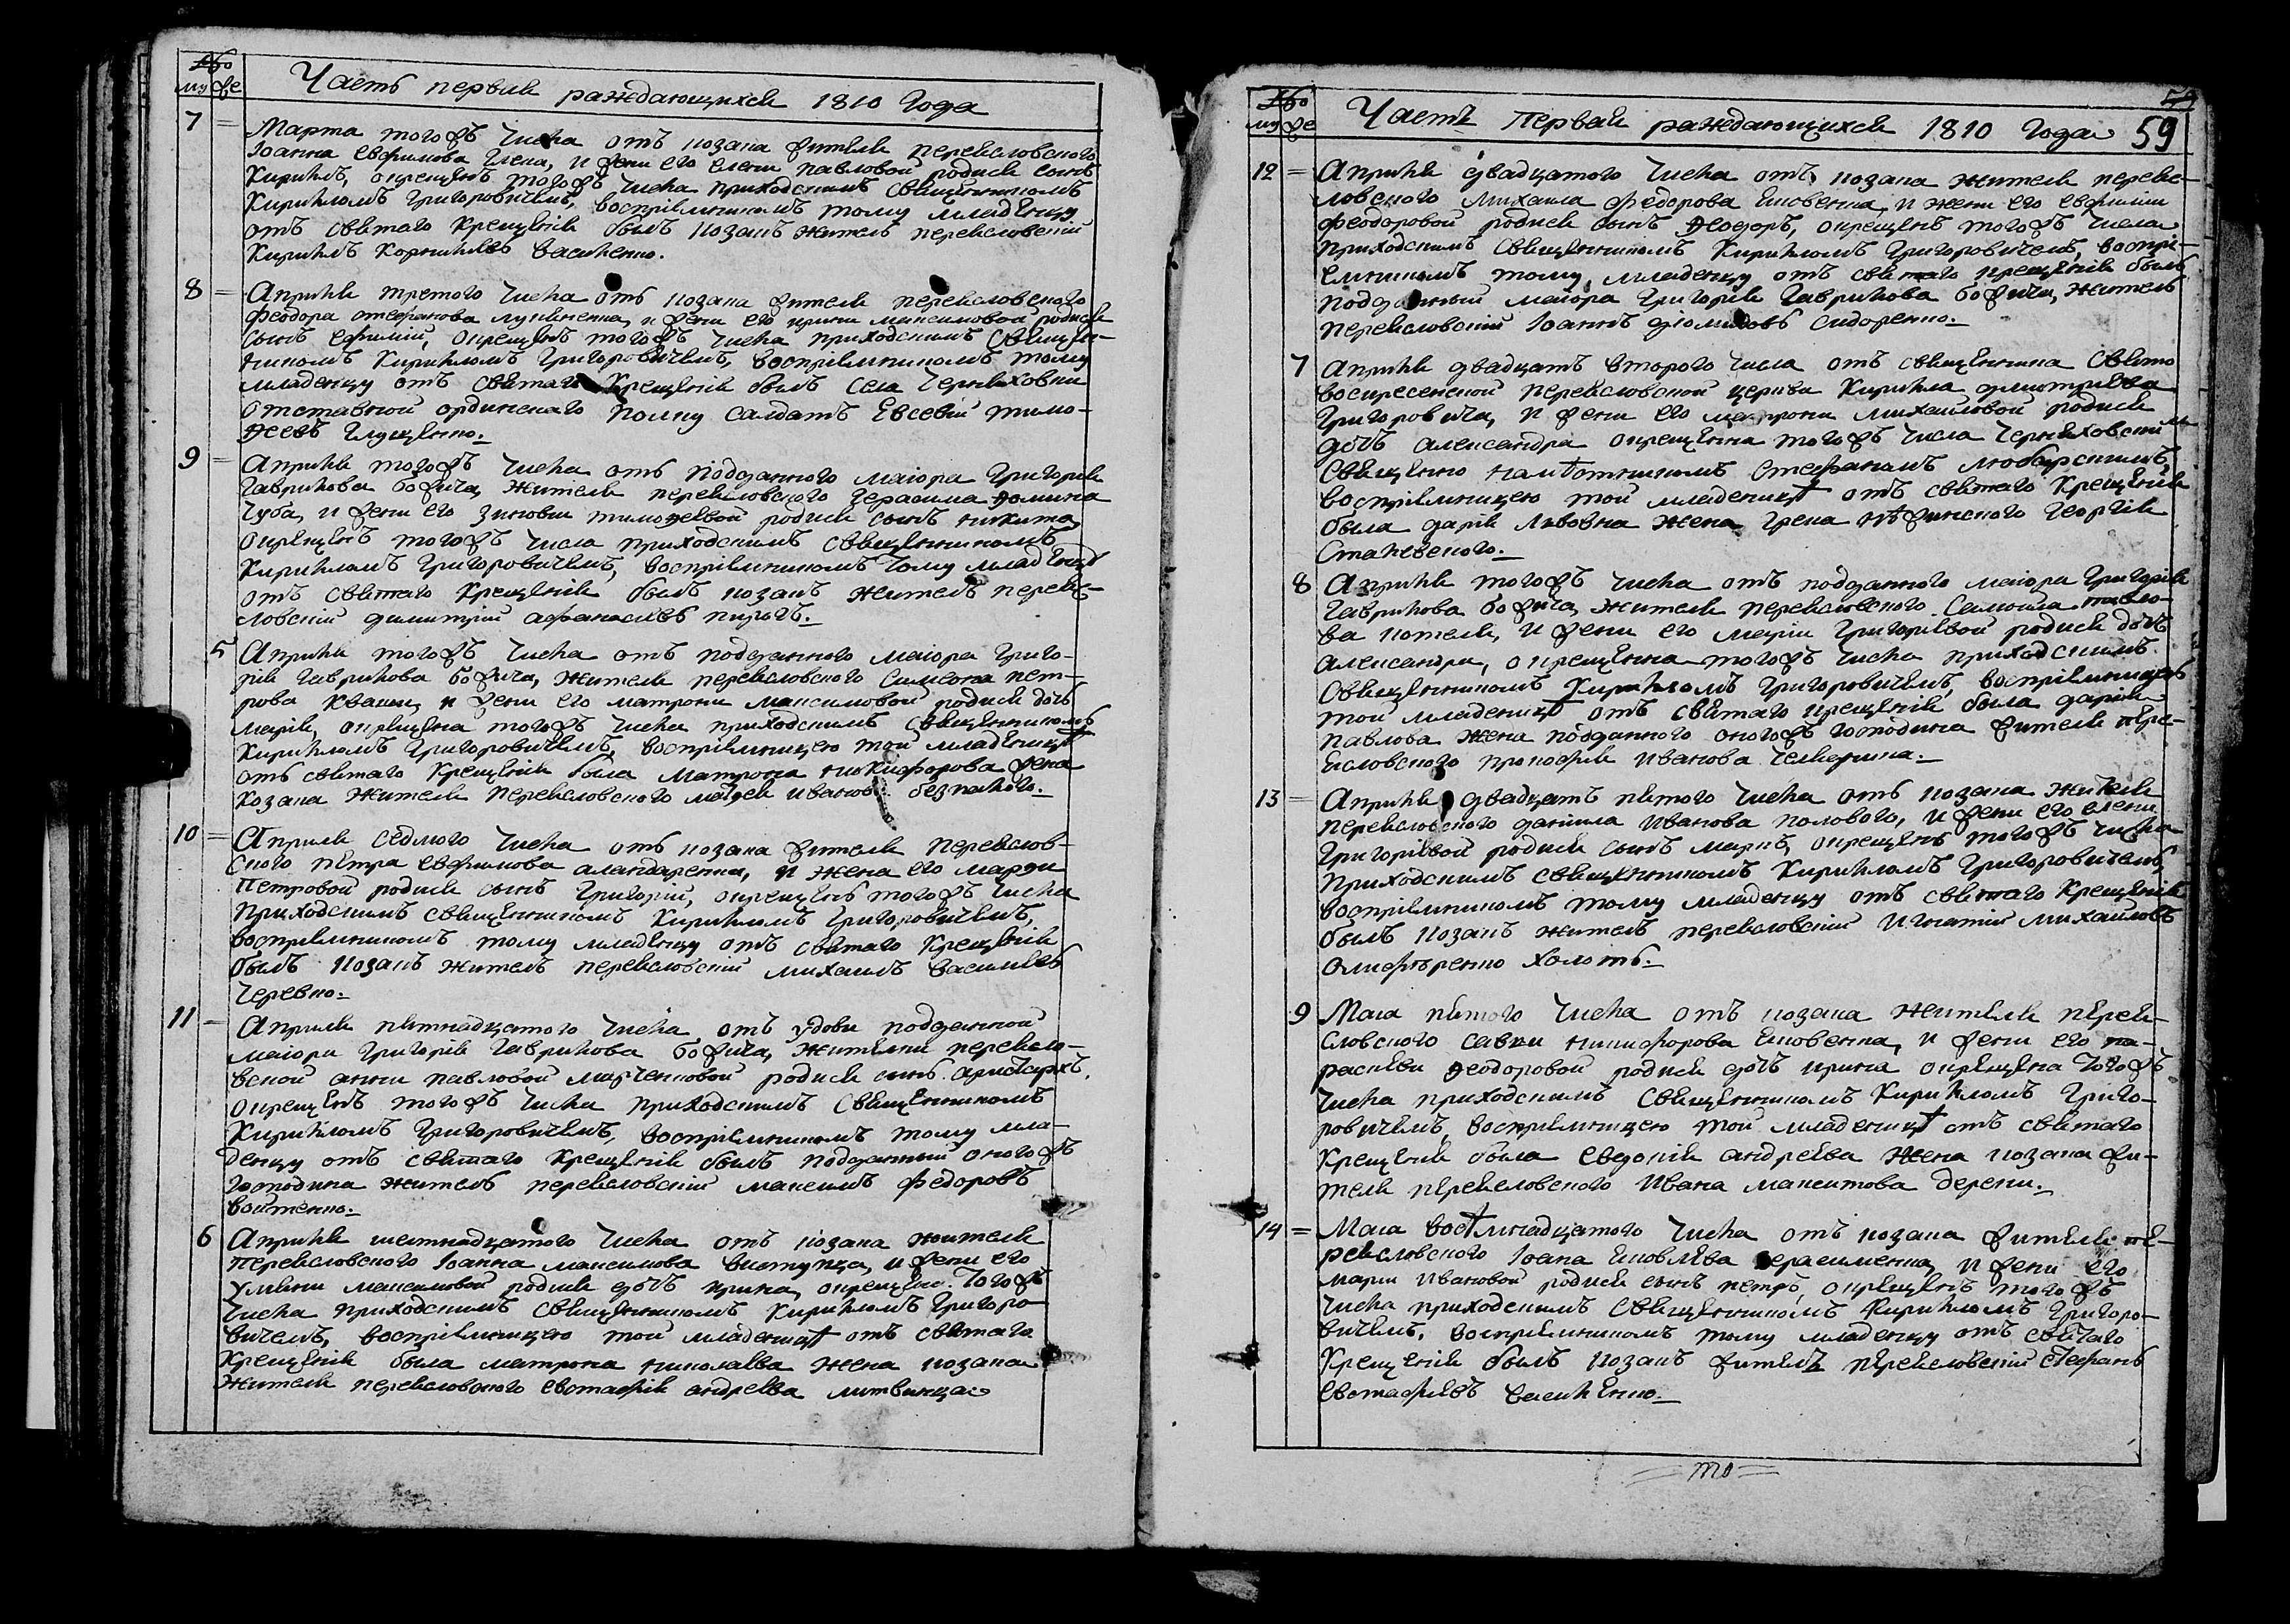 Число
му же
Часть первая раждающихся 1810 Года
7 = Марта тогожъ числа отъ козака жителя переясловского
Іоанна Евфимова Глека, и жени его Елени Павловой родися синъ
Кирилъ, окрещенъ тогожъ числа приходскимъ священникомъ
Кириломъ Григоровичемъ, воспріемникомъ тому младенцу
отъ святаго крещенія былъ козакъ житель переясловскій
Кирилъ Корниліевъ Василенко.
8 = Апріля третого числа отъ козака жителя переясловского
Феодора Стефанова Лукяненка, и жени его Ирини Максимовой родися
синъ Ефимій, окрещенъ тогожъ числа приходскимъ священ-
никомъ Кириломъ Григоровичемъ, воспріемникомъ тому
младенцу отъ святаго крещенія былъ села Черняховки
отставной ординского полку салдатъ Евсевій Тимо-
ѳеевъ Глущенко.
9 = Апріля тогожъ числа отъ подданного маіора Григорія
Гаврилова Божича, жителя переясловского Герасима Ѳомина
Чуба, и жени его Зиновіи Тимоѳеевой родися синъ Никита,
окрещенъ тогожъ числа приходскимъ священникомъ
Кириломъ Григоровичемъ, воспріемникомъ тому младенцу
отъ святаго крещенія былъ козакъ житель перея-
словскій Димитрій Афанасіевъ
5 Апріля тогожъ числа отъ подданного маіора Григо-
рія Гаврилова Божича, жителя переясловского Симеона Пет-
рова Кваши, и жени его Матрони Максимовой родися дочь
Марія, окрещена тогожъ числа приходскимъ священникомъ
Кириломъ Григоровичемъ, воспріемницею той младеницѣ
отъ святаго крещенія была Матрона Никифорова жена
козака жителя переясловского Матѳея Иванова Безпалого.
10 = Апріля седмого числа отъ козака жителя переяслов-
ского Петра Евфимова и жена его Марфи
Петровой родися синъ Григорій, окрещенъ тогожъ числа
приходскимъ священникомъ Кириломъ Григоровичемъ,
воспріемникомъ тому младенцу отъ святаго крещенія
былъ козакъ житель переясловскій Михаилъ Василіевъ
Черевко.
11 = Апріля пятнадцатого числа отъ удови подданной
маіора Григорія Гаврилова Божича, жителки переясло-
вской Анни Павловой Марченковой родися синъ Аристархъ,
окрещенъ тогожъ числа приходскимъ священникомъ
Кириломъ Григоровичемъ, воспріемникомъ тому мла-
денцу отъ святаго крещенія былъ подданный оногожъ
господина житель переясловскій Максимъ Федоровъ
Войтенко.
6 Апріля шестнадцатого числа отъ козака жителя
переясловского Іоанна Максимова Виступца, и жени его
Улияни Максимовой родися дочъ Ирина, окрещена тогожъ
числа приходскимъ священникомъ Кириломъ Григоро-
вичемъ, воспріемницею той младеницѣ отъ святаго
крещенія была Матрона Николаева жена козака
жителя переясловского Евстафія Андреева Литвинца
Число
му же
Часть Первая раждающихся 1810 Года 59
12 = Апріля двадцатого числа отъ козака жителя перея-
словского Михаила Федорова Яковенка и жени его Евфиміи
Феодоровой родися синъ Ѳеодоръ, окрещенъ тогожъ числа
приходскимъ священникомъ Кириломъ Григоровичемъ, воспрі-
емникомъ тому младенцу отъ святаго крещенія былъ
подданный маіора Григорія Гаврилова Божича, житель
переясловскій Іоаннъ Діомидовъ Сидоренко.
7 Апріля двадцать второго числа отъ священника Свято
воскресенской переясловской церкви Кирила Дмитріева
Григоровича, и жени его Матрони Михайловой родися
дочъ Александра окрещенна тогожъ числа Черняховским
священно намѣстникомъ Стефаномъ Любарскимъ,
воспріемницею той младеницѣ отъ святаго крещенія
была Дарія Лвовна жена грека нѣжинского Георгія
8 Апріля тогожъ числа отъ подданного маіора Григорія
Гаврилова Божича, жителя переясловского Самоила Павло-
ва Котеля, и жени его Маріи Григоріевой родися дочъ
Александра, окрещенна тогожъ числа приходскимъ
священникомъ Кириломъ Григоровичемъ, воспріемницею
той младеницѣ отъ святаго крещенія была Дарія
Павлова жена подданного оногожъ господина жителя пере-
ясловского Прокофія Иванова
13 = Апріля двадцать пятого числа отъ козака жителя
переясловского Даніила Иванова Полового, и жени его Елени
Григоріевой родися синъ Маркъ, окрещенъ тогожъ числа
приходскимъ священникомъ Кириломъ Григоровичемъ,
воспріемникомъ тому младенцу отъ святаго крещенія
былъ козакъ житель переясловскій Игнатій Михайловъ
9 Маія пятого числа отъ козака жителя перея-
словского Савви Никифорова Яковенка, и жени его Па-
раскевіи Ѳеодоровой родися дочъ Ирина окрещена тогожъ
числа приходскимъ священникомъ Кириломъ Григо-
ровичемъ, воспріемницею той младеницѣ отъ святаго
крещенія была Евдокія Андреева жена козака жи-
теля переясловского Ивана Никитова
14 = Маія восѣмнадцатого числа отъ козака жителя пе-
реясловского Іоана Яковлева Герасименка, и жени его
Маріи Ивановой родися синъ Петръ, окрещенъ тогожъ
числа приходскимъ священникомъ Кириломъ Григоро-
вичемъ, воспріемникомъ тому младенцу отъ святаго
крещенія былъ козакъ житель переясловскій Стефанъ
Евстафіевъ Василенко.